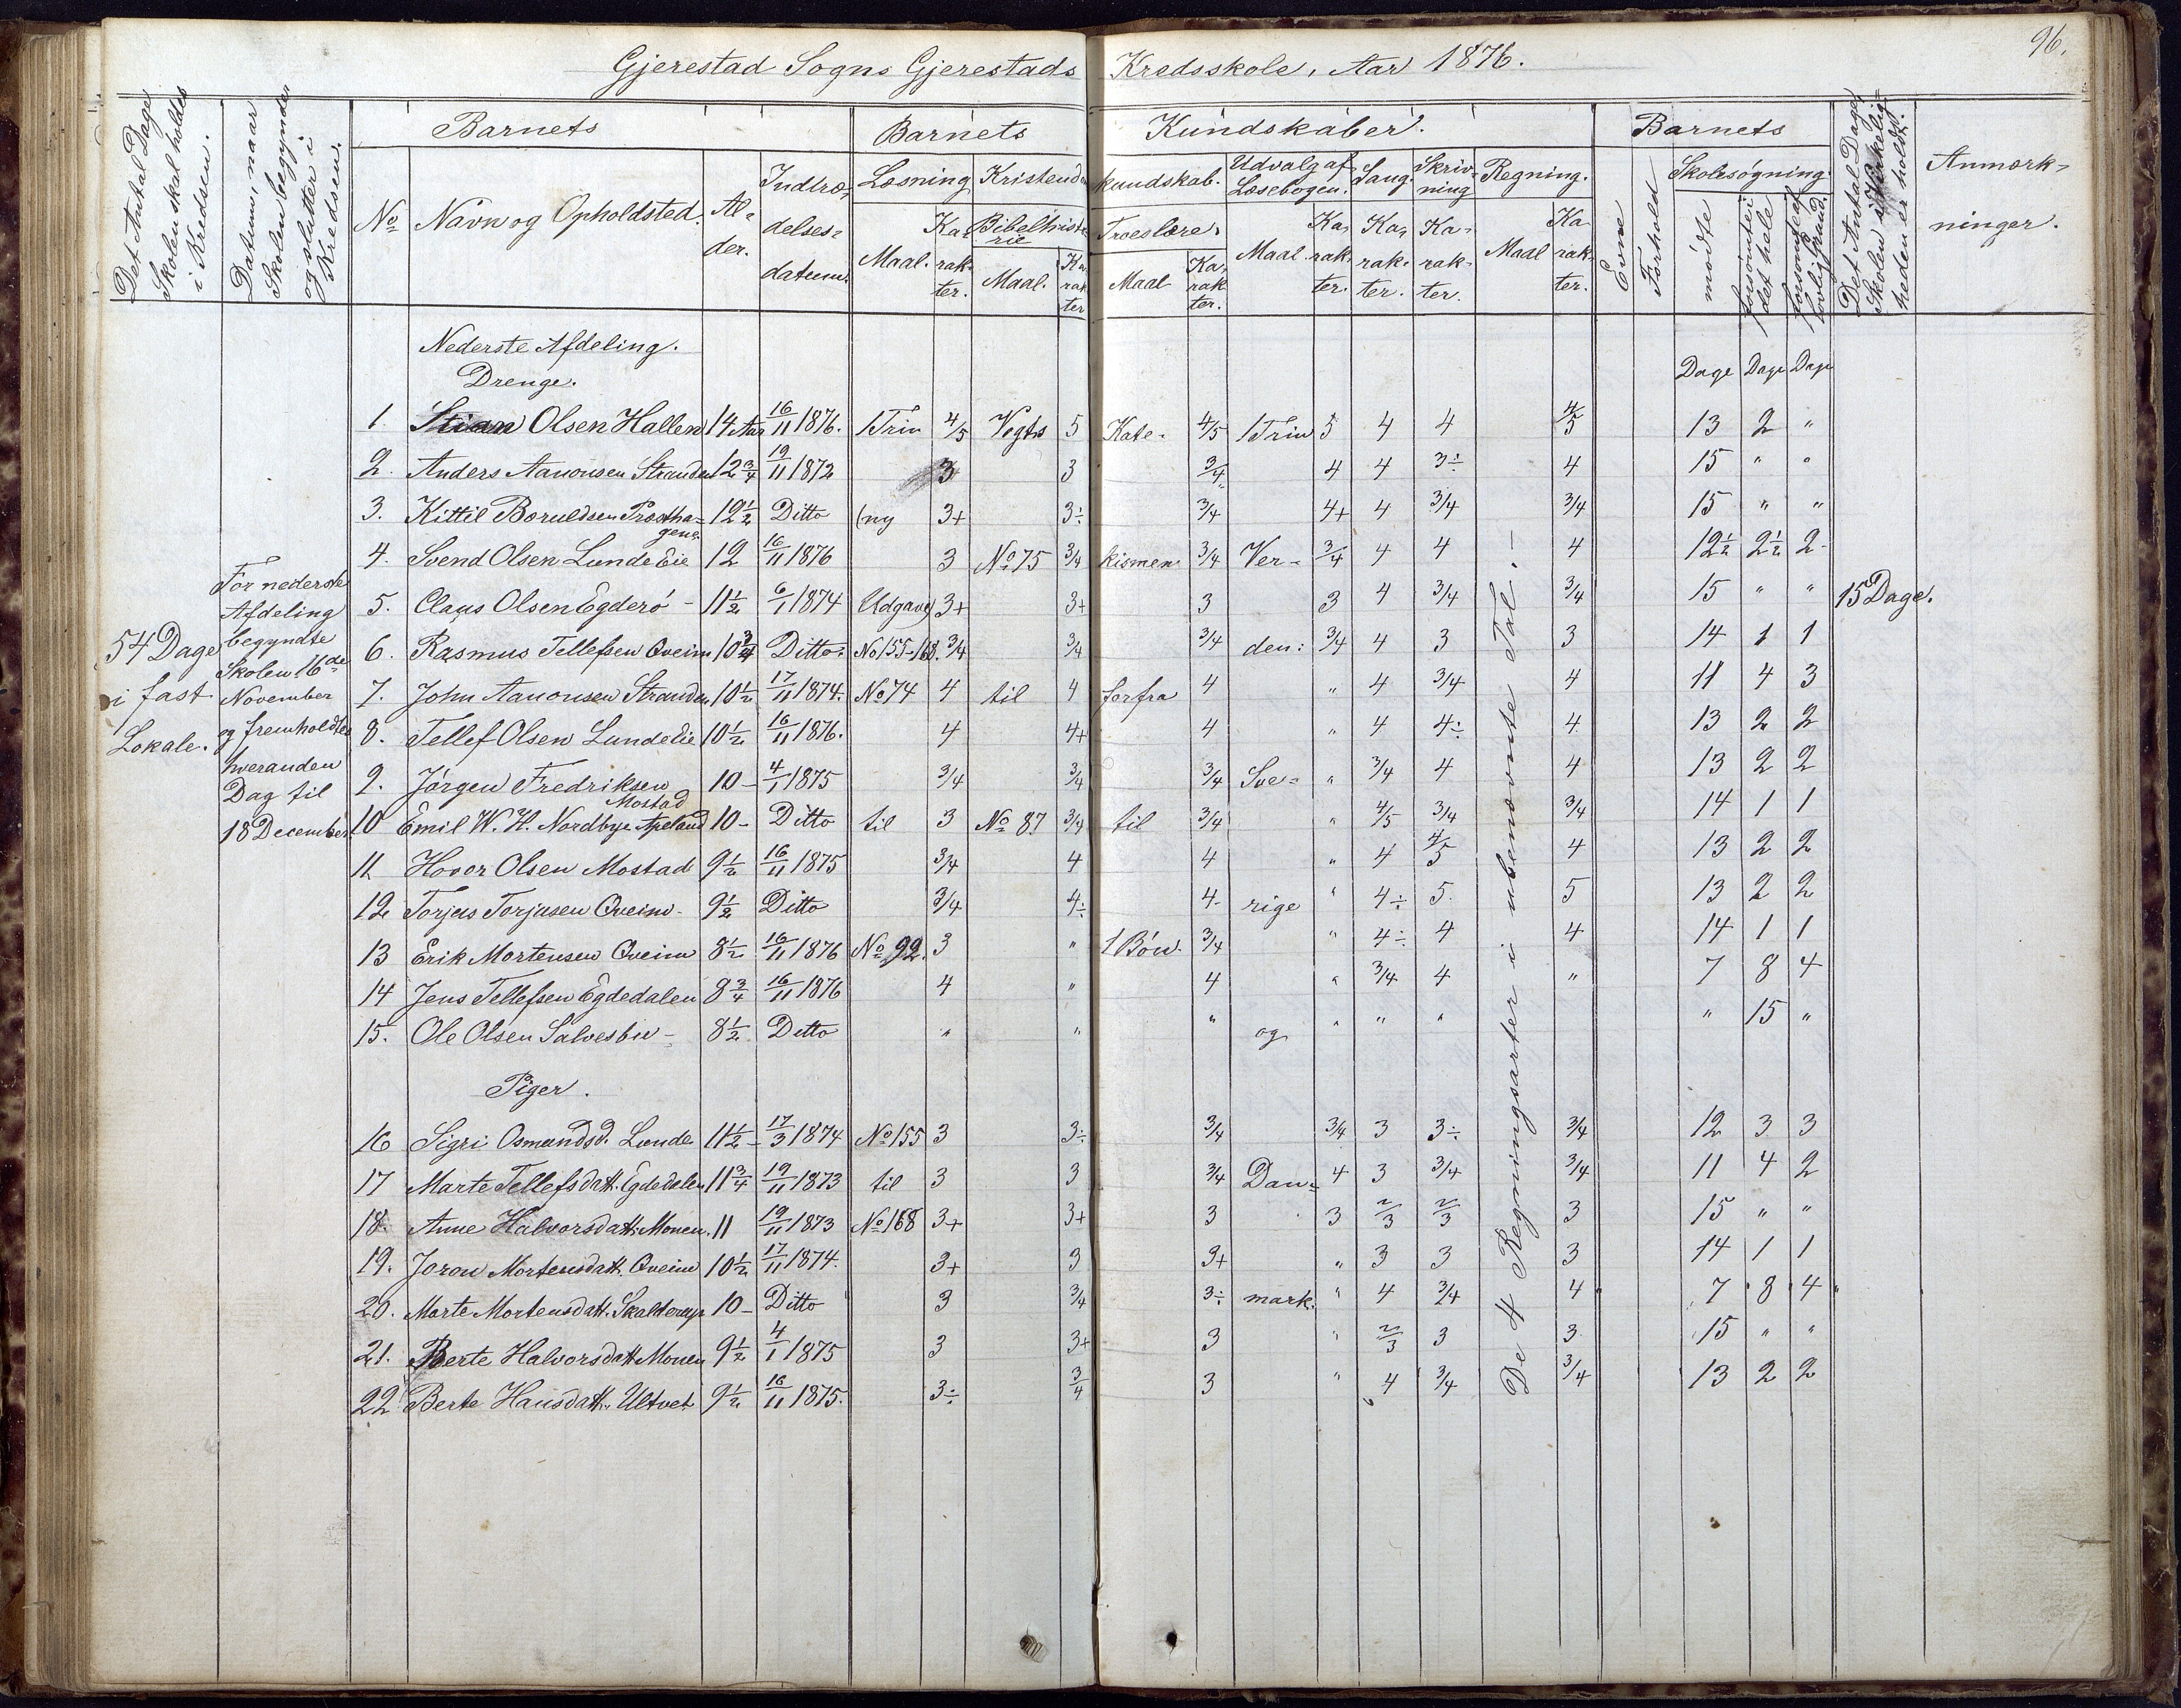 96.
Gjerestad Sogns Gjerestads Kredsskole, Aar 1876.
Det Antal Dage Skolen skal holdes i Kredsen.
Datum, naar Skolen begynder og slutter i Kredsen.
Barnets
Barnets Kundskaber.
Barnets
Det Antal Dage Skolen i Virkeligheden er holdt.
Anmærkninger.
No Navn og Opholdsted. Alder. Indtrædelsesdatum.
Læsning Kristendomskundskab. Udvalg af Læsebogen. Sang. Skrivning Regning.
Evne Forhold Skolesøgning
Maal. Karakter. Bibelhistorie Maal. Karakter Troeslære. Maal Karakter. Maal Karakter. Karakter. Karakter. Maal Karakter.
mødte forsømte i det hele forsømte af lovlig Grund.
Nederste Afdeling.
Drenge.
Dage Dage Dage
1. Stian Olsen Hallen 14 Aar 16/11 1876. 1 Trin 4/5 Vogts 5 Kate- 4/5 1 Trin 5 4 4 4/5 13 2 "
2. Anders Aanonsen Stranden 12 3/4 19/11 1872 3 3 3/4 4 4 3÷ 4 15 " "
3. Kittil Boruldsen Præsthagene 12 1/2 Ditto (ny 3+ 3÷ 3/4 4+ 4 3/4 3/4 15 " "
4. Svend Olsen Lunde Eie 12 16/11 1876 3 No 75 3/4 kismen 3/4 Ver- 3/4 4 4 4 12 1/2 2 1/2 2-
5. Claus Olsen Egderö - 11 1/2 6/1 1874 Udgave) 3+ 3+ 3 3 4 3/4 3/4 15 " " 15 Dage.
6. Rasmus Tellefsen Qveim 10 3/4 Ditto No 155-168. 3/4 3/4 3/4 den: 3/4 4 3 3 14 1 1
7. John Aanonsen Stranden 10 1/2 17/11 1874. No 74 4 til 4 forfra 4 " 4 3/4 4 11 4 3
8. Tellef Olsen Lunde Eie 10 1/2 16/11 1876. 4 4+ 4 " 4 4÷ 4 13 2 2
9. Jørgen Fredriksen Mostad 10- 4/1 1875 3/4 3/4 3/4 Sve- " 3/4 4 4 13 2 2
10 Emil W. H. Nordbye Apeland 10- Ditto til 3 No 87 3/4 til 3/4 " 4/5 3/4 3/4 14 1 1
11 Hovor Olsen Mostad 9 1/2 16/11 1875 3/4 4 4 " 4 4/5 4 13 2 2
12 Torjus Torjusen Qveim- 9 1/2 Ditto 3/4 4÷ 4- rige " 4÷ 5. 5 13 2 2
13 Erik Mortensen Qveim 8 1/2 16/11 1876 No 92. 3 " 1 Bön. 3/4 " 4÷ 4 4 14 1 1
14 Jens Tellefsen Egdedalen 8 3/4 16/11 1876 4 " 4 " 3/4 4 " 7 8 4
15. Ole Olsen Salvesbu - 8 1/2 Ditto " " " og " " " " 15 "
Piger.
16 Sigri Osmundsd. Lunde 11 1/2- 17/3 1874 No 155 3 3÷ 3/4 3/4 3 3÷ 3/4 12 3 3
17 Marte Tellefsdatt. Egdedalen 11 3/4 19/11 1873 til 3 3 3/4 Dan= 4 3 3/4 3/4 11 4 2
18. Anne Halvorsdatt. Monen. 11 19/11 1873 No 168 3+ 3+ 3 3 2/3 2/3 3 15 " "
19. Joron Mortensdatt. Qveim 10 1/2 17/11 1874. 3+ 3 3+ " 3 3 3 14 1 1
20. Marte Mortensdatt. 10- Ditto 3 3/4 3÷ mark. " 4 3/4 4 7 8 4
21. Berte Halvorsdatt. Monen 9 1/2 4/1 1875 3 3+ 3 " 2/3 3 3 15 " "
22 Berte Hansdatt. Ultvet 9 1/2 16/11 1875. 3÷ 3/4 3 " 4 3/4 3/4 13 2 2
De 4 Regningsarter i ubenævnte Tal. -
54 Dage
i fast
Lokale.
For nederste
Afdeling
begyndte
Skolen 16de
November
og fremholdtes
hveranden
Dag til
18 December